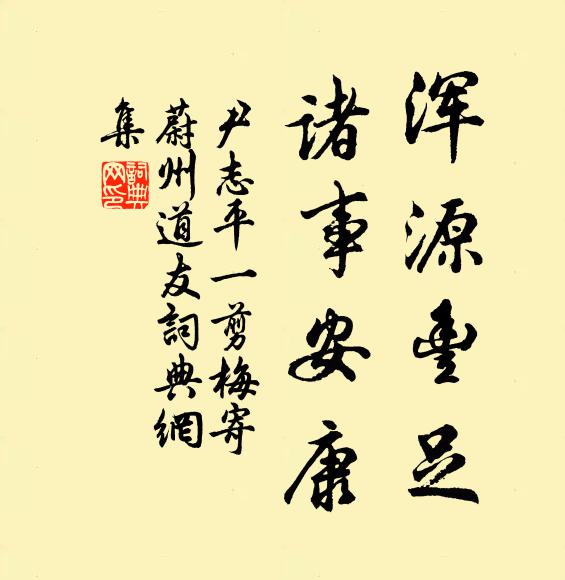 浑源丰足
诸事安康
尹志平一剪梅寄
蔚州道友詞典網
集
詞典网印